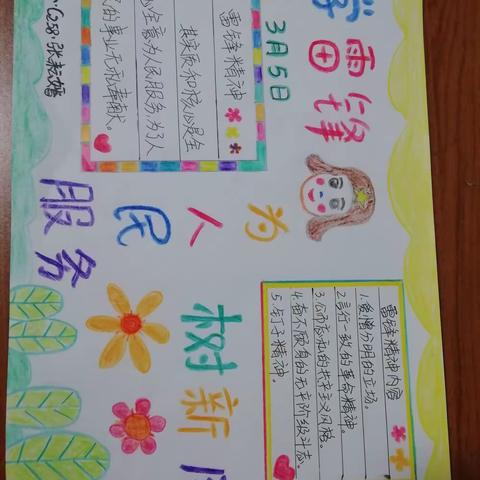 学雷锋
3月5日
雷锋精神
其实质和核心是全
心全意为人民服务,为了人
民的事业无私奉献。
为人民服务
树新
雷锋精神内容
1.爱憎分明的立场。
2.言行一致的革命精神。
3.公而忘私的共产主义风格。
4.奋不顾身的无产阶级斗志。
5.钉子精神。